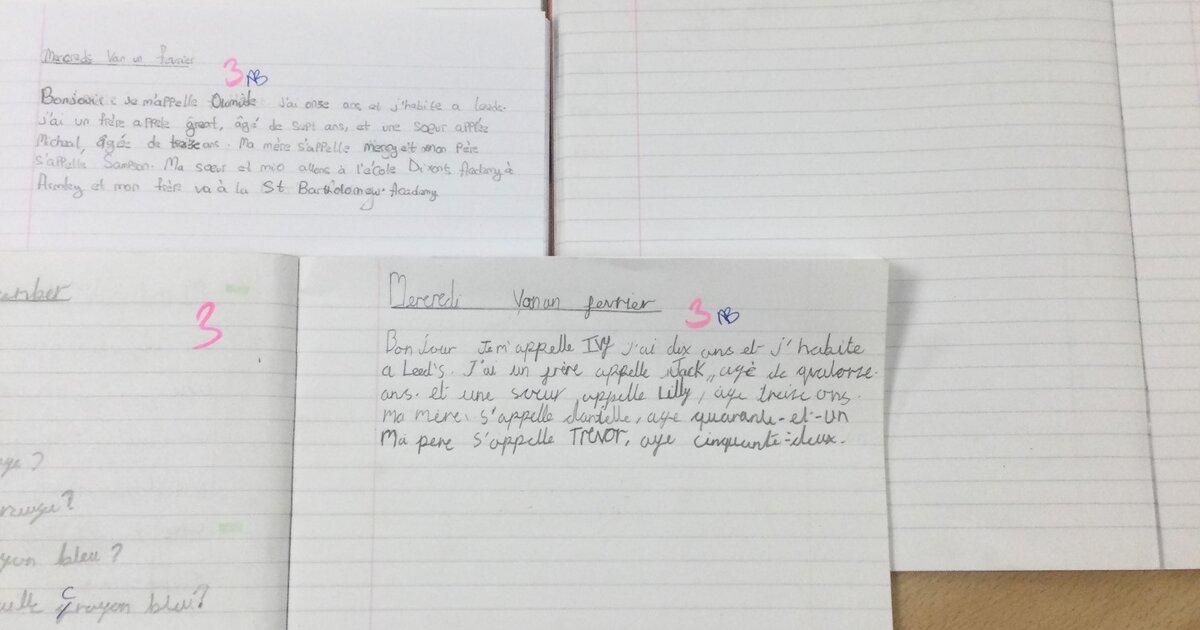 Mercredi Van un fevrier
3 AB
Bonjour: Je m'appelle J'ai onse ans et j'habite a Leeds.
J'ai un frère appelé great, âgé de sept ans, et une sœur appelée
Micheal, âgée de treize ans. Ma mère s'appelle mercy et mon Père
s'appelle Sampson. Ma sœur et mio allons à l'école Dixons Academy à
Armley et mon frère va à la St Bartholomew Academy
Mercredi Vanun fevrier
3 AB
Bonjour Je m'appelle IVy J'ai dix ans et j'habite
a Leed's. J'ai un frère appelle Jack, aye de quatorze.
ans. et une sœur, appelle Lilly, aye treize ans.
ma mère s'appelle dantelle, aye quarante-et-un
Ma pere s'appelle Trevor, aye cinquante-deux.
3
bleu?
crayon bleu?